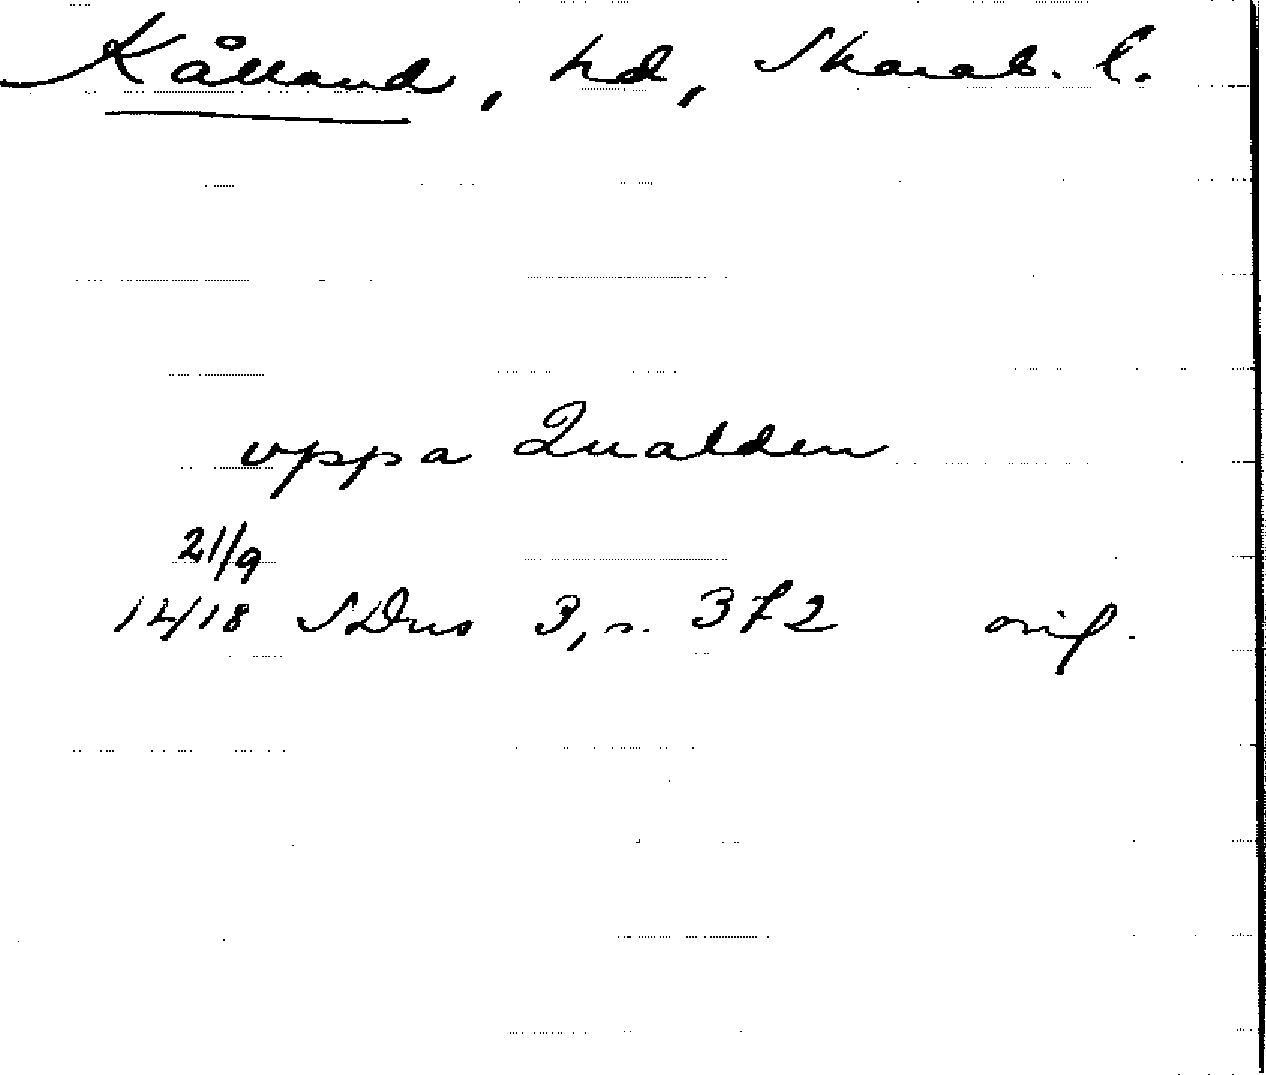 Kålland, hd, Skarab. l.
vppa Qualden
21/9
1418 SDns 3, s. 372 orig.